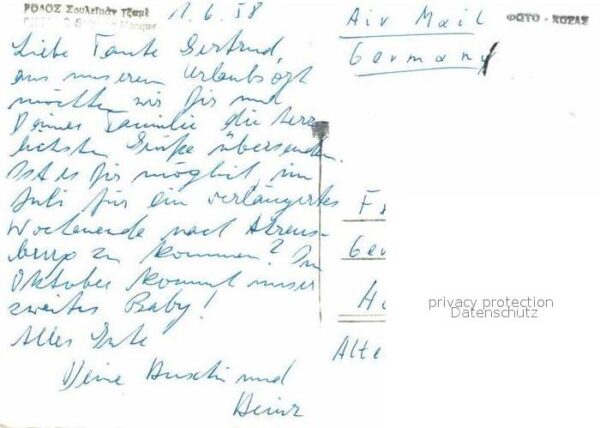 ΡΟΔΟΣ Σουλεϊμάν Τζαμί
1.6.58
Air Mail
Germany
ΦΩΤΟ - ΚΟΖΑΣ
Liebe Tante Gertrud,
aus unserem Urlaubsort
möchten wir Dir und
Deiner Familie die herz
lichsten Grüße übersenden.
Ist es Dir möglich, im
Juli für ein verlängertes
Wochenende nach Ahrens-
burg zu kommen? Im
Oktober kommt unser
zweites Baby!
Alles Gute
Deine und
Heinz
F
Ger
Ha
Alte
privacy protection
Datenschutz